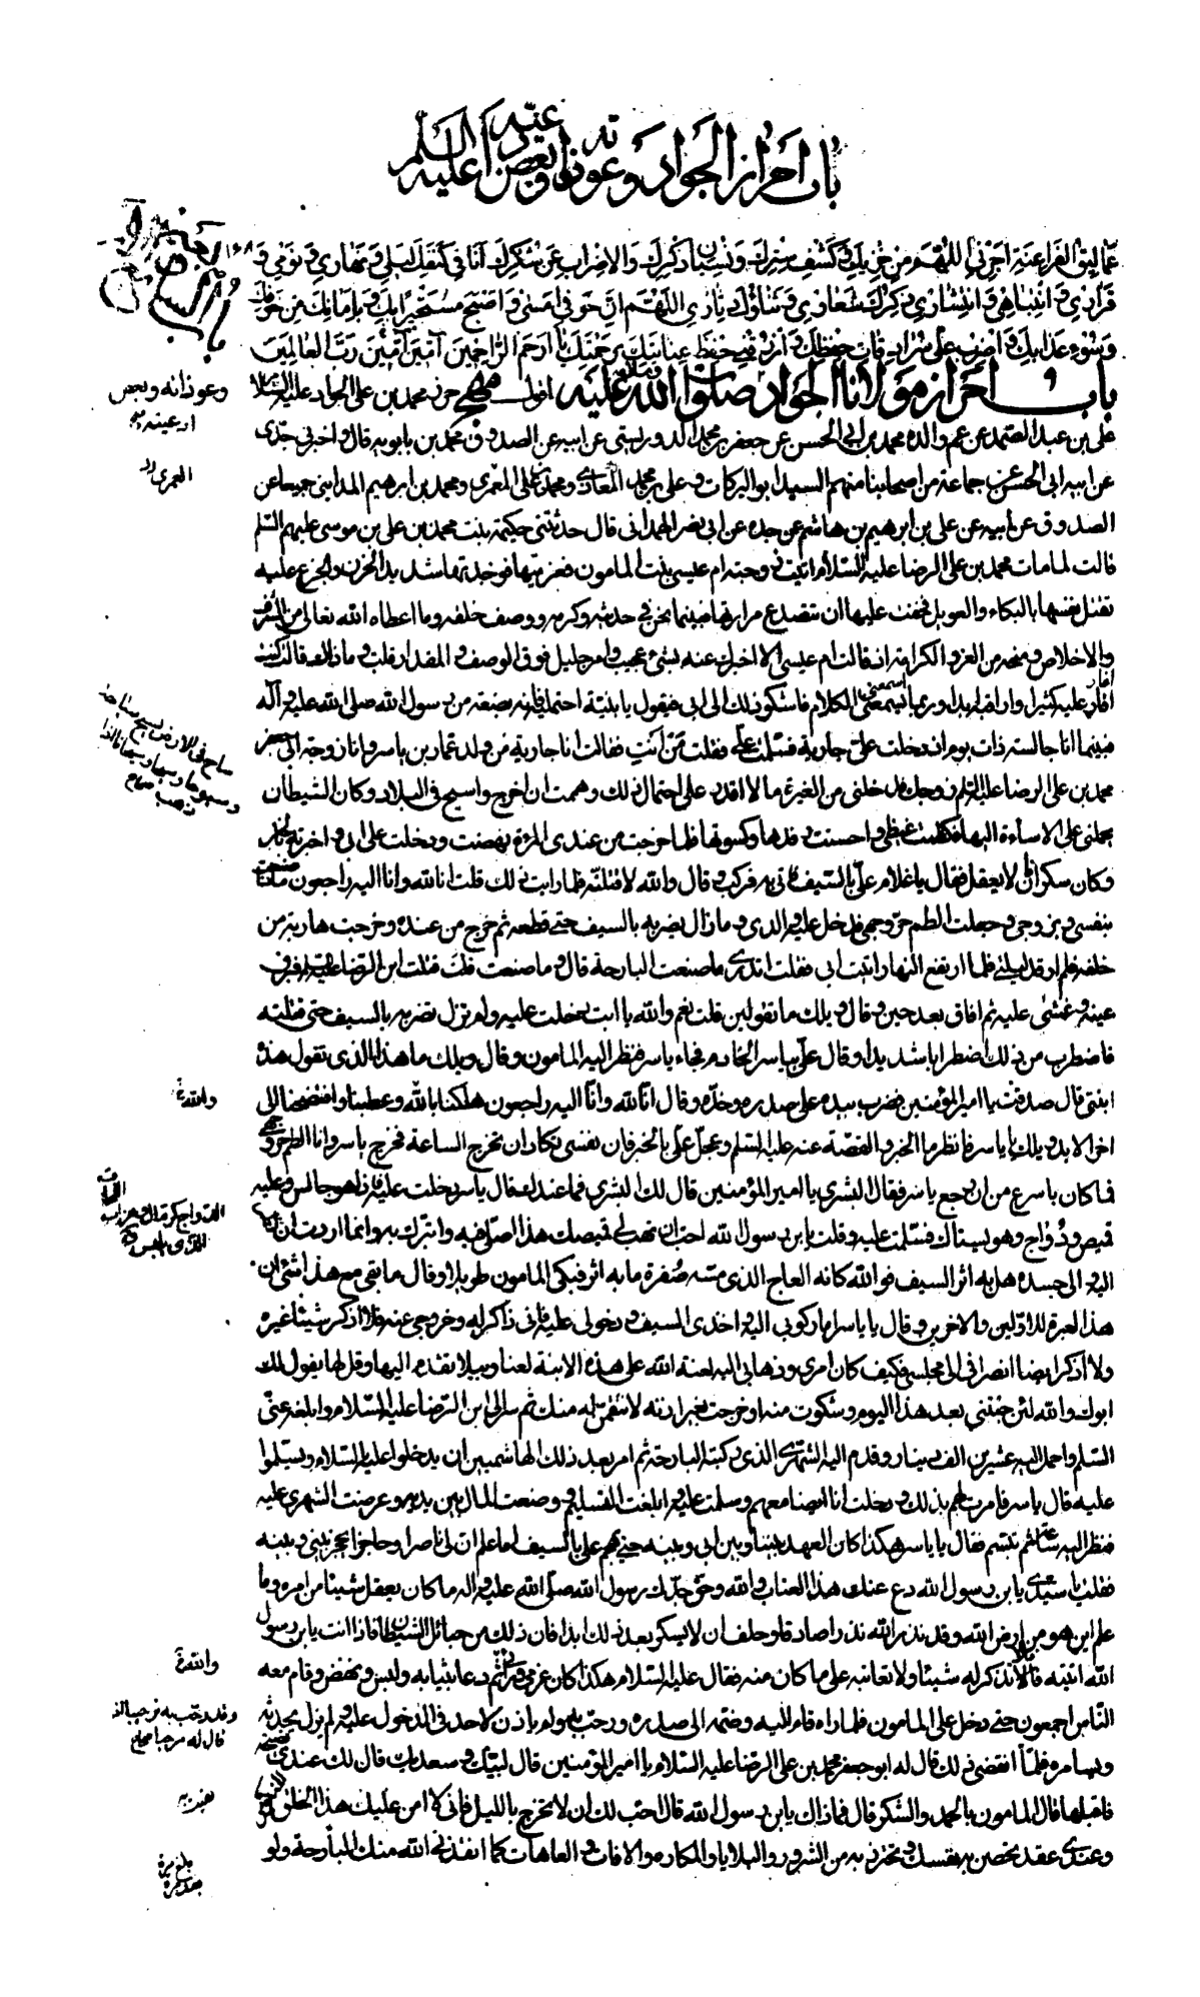 باب احراز الجواد وعوذاته وبعض ادعيته عليه السلم
عماليق الفراعنة اجرني اللهم من خزيك وكشف سترك ونسيان ذكرك والاضراب عن شكرك انا في كنفك ليلي ونهاري ونومي و
قراري وانتباهي وانتشاري ذكرك شعاري وثناؤك دثاري اللهم ان خوفي امسى واصبح مستجيرا بك وبامانك من خوفك
وسوء عذابك واضرب علي سرادقات حفظك وارزقني حفظ عنايتك برحمتك يا ارحم الراحمين آمين آمين رب العالمين
باب احراز مولانا الجواد صلوات الله عليه اقول مهج حرز محمد بن علي الجواد عليه السلام
علي بن عبد الصمد عن عم والده محمد بن ابي الحسن عن جعفر بن محمد الدوريستي عن ابيه عن الصدوق محمد بن بابويه قال واخبرني جدي
عن ابيه ابي الحسن عن جماعة من اصحابنا منهم السيد ابو البركات وعلي بن محمد المعاذي ومحمد بن علي المعمري ومحمد بن ابرهيم المدايني جميعا عن
الصدوق عن ابيه عن علي بن ابرهيم بن هاشم عن جده عن ابي نصر الهمداني قال حدثتني حكيمة بنت محمد بن علي بن موسى عليهم السلم
قالت لما مات محمد بن علي الرضا عليه السلام اتيت زوجته ام عيسى بنت المامون فعزيتها فوجدتها شديد الحزن والجزع عليه
تقتل نفسها بالبكاء والعويل فخفت عليها ان تتصدع مرارتها فبينما نحن في حديثه وكرمه ووصف خلقه وما اعطاه الله تعالى من الشرف
والاخلاص ومنحه من العز والكرامة اذ قالت ام عيسى الا اخبرك عنه بشئ عجيب وامر جليل فوق الوصف والمقدار قلت وما ذاك قالت كنت
اغار عليه كثيرا واراقبه ابدا وربما يسمعني الكلام فاشكو ذلك الى ابي فيقول يا بنية احتمليه فانه بضعة من رسول الله صلى الله عليه وآله
فبينما انا جالسة ذات يوم اذ دخلت علي جارية فسلمت علي فقلت من انت فقالت انا جارية من ولد عمار بن ياسر وانا زوجة ابي جعفر
محمد بن علي الرضا عليه السلم زوجك فدخلني من الغيرة ما لا اقدر على احتمال ذلك وهممت ان اخرج واسيح في البلاد وكان الشيطان
يحملني على الاساءة اليها فكظمت غيظي واحسنت رفدها وكسوتها فلما خرجت من عندي المرءة نهضت ودخلت على ابي واخبرته بالخبر
وكان سكرانا لا يعقل فقال يا غلام علي بالسيف فاتي به فركب وقال والله لاقتلنه فلما رايت ذلك قلت انا لله وانا اليه راجعون ما صنعت
بنفسي وبزوجي وجعلت الطم حر وجهي فدخل عليه والدي وما زال يضربه بالسيف حتى قطعه ثم خرج من عنده وخرجت هاربة من
خلفه فلم ارقد ليلتي فلما ارتفع النهار اتيت ابي فقلت اتدري ما صنعت البارحة قال وما صنعت قلت قتلت ابن الرضا عليه السلم فبرق
عينه وغشي عليه ثم افاق بعد حين وقال ويلك ما تقولين قلت نعم والله يا ابت دخلت عليه ولم تزل تضربه بالسيف حتى قتلته
فاضطرب من ذلك اضطرابا شديدا وقال علي بياسر الخادم فجاء ياسر فنظر اليه المامون وقال ويلك ما هذا الذي تقول هذه
ابنتي قال صدقت يا امير المؤمنين فضرب بيده على صدره وخده وقال انا لله وانا اليه راجعون هلكنا بالله وعطبنا وافتضحنا الى
اخر الابد ويلك يا ياسر فانظر ما الخبر والقصة عنه عليه السلم وعجل علي بالخبر فان نفسي تكاد ان تخرج الساعة فخرج ياسر وانا الطم حر وجهي
فما كان باسرع من ان رجع ياسر فقال البشرى يا امير المؤمنين قال لك البشرى فما عندك قال ياسر دخلت عليه فاذا هو جالس وعليه
قميص ودواج وهو يستاك فسلمت عليه وقلت يا بن رسول الله احب ان تهب لي قميصك هذا اصلي فيه واتبرك به وانما اردت ان انظر
اليه والى جسده هل به اثر السيف فو الله كانه العاج الذي مسه صفرة ما به اثر فبكى المامون طويلا وقال ما بقي مع هذا شئ ان
هذا لعبرة للاولين والاخرين وقال يا ياسر اما ركوبي اليه واخذي السيف ودخولي عليه فاني ذاكر له وخروجي عنه فلا اذكر شيئا غيره
ولا اذكر ايضا انصرافي الى مجلسي فكيف كان امري وذهابي اليه لعنة الله على هذه الابنة لعنا وبيلا تقدم اليها وقل لها يقول لك
ابوك والله لئن جئتني بعد هذا اليوم وشكوت منه او خرجت بغير اذنه لانتقمن له منك ثم سر الى ابن الرضا عليه السلام وابلغه عني
السلم واحمل اليه عشرين الف دينار وقدم اليه الشهري الذي ركبته البارحة ثم امر بعد ذلك الهاشميين ان يدخلوا عليه السلام ويسلموا
عليه قال ياسر فامرت لهم بذلك ودخلت انا ايضا معهم وسلمت عليه وابلغت التسليم ووضعت المال بين يديه وعرضت الشهري عليه
فنظر اليه ساعة ثم تبسم فقال يا ياسر هكذا كان العهد بيننا وبين ابي وبينه حتى يهجم علي بالسيف اما علم ان لي ناصرا وحاجزا يحجز بيني وبينه
فقلت يا سيدي يا بن رسول الله دع عنك هذا العتاب والله وحق جدك رسول الله صلى الله عليه واله ما كان يعقل شيئا من امره وما
علم اين هو من ارض الله وقد نذر لله نذرا صادقا وحلف ان لا يسكر بعد ذلك ابدا فان ذلك من حبائل الشيطان فاذا انت يا بن رسول
الله اتيته فلا تذكر له شيئا ولا تعاتبه على ما كان منه فقال عليه السلام هكذا كان عزمي ورايي ثم دعا بثيابه ولبس ونهض وقام معه
الناس اجمعون حتى دخل على المامون فلما راه قام اليه وضمه الى صدره ورحب به ولم ياذن لاحد في الدخول عليه ولم يزل يحدثه
ويسامره فلما انقضى ذلك قال له ابو جعفر محمد بن علي الرضا عليه السلام يا امير المؤمنين قال لبيك وسعديك قال لك عندي نصيحة
فاقبلها قال المامون بالحمد والشكر قال فما ذاك يا بن رسول الله قال احب لك ان لا تخرج بالليل فاني لا امن عليك هذا الخلق المنكوس
وعندي عقد تحصن به نفسك وتحترز به من الشرور والبلايا والمكاره والافات والعاهات كما انقذني الله منك البارحة ولو
وعوذاته وبعض
ادعيته
العمري
ساح في الارض يسيح سياحة
وسيوحا وسيحا وسيحانا اذا
ذهب
والله
وقد رحب به ترحيبا اذ
قال له مرحبا